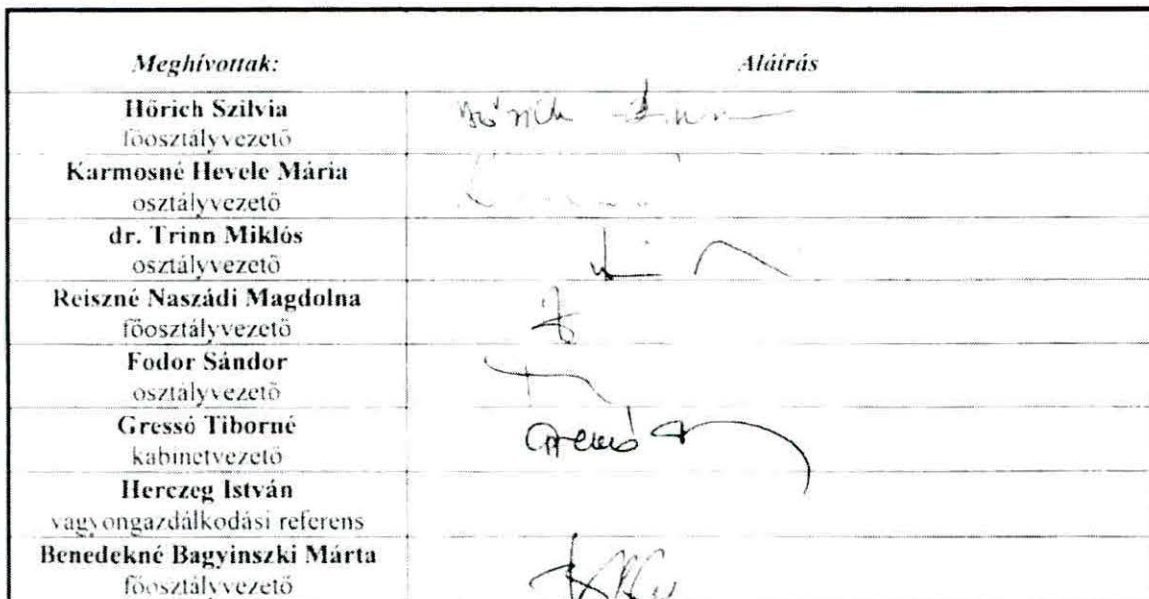 Meghívottak: Aláírás
Hórich Szilvia
főosztályvezető
Karmosné Hevele Mária
osztályvezető
dr. Trinn Miklós
osztályvezető
Reiszné Naszádi Magdolna
főosztályvezető
Fodor Sándor
osztályvezető
Gressó Tiborné
kabinetvezető
Herczeg István
vagyongazdálkodási referens
Benedekné Bagyinszki Márta
főosztályvezető